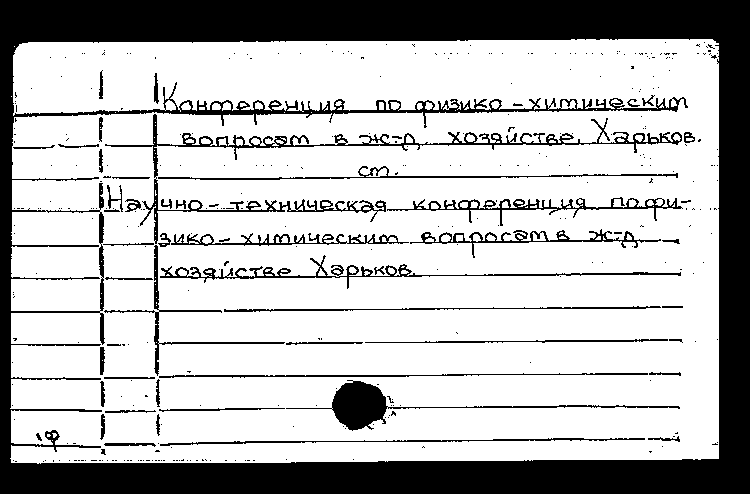 Конференция по физико-химическим
вопросам в ж-д. хозяйстве. Харьков.
ст.
Научно-техническая конференция по фи-
зико-химическим вопросам в ж-д.
хозяйстве. Харьков.